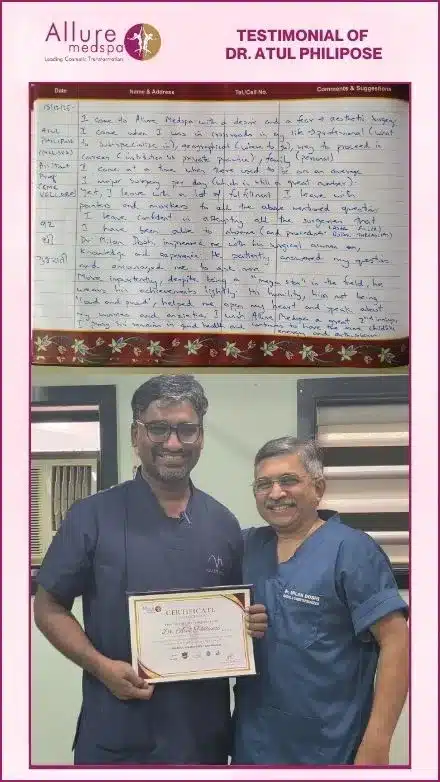 Allure
medspa
Leading Cosmetic Transformation
TESTIMONIAL OF
DR. ATUL PHILIPOSE
Date
Name & Address
Tel./Call No.
Comments & Suggestions
Atul
Philipose
Assistant
Prof
(CMC
VELLORE)
I came to Allure Medspa with a desire and a fear of aesthetic surgery.
I came when I was in crossroads in my life - professional (what
to subspecialise in), geographical (where to go), way to proceed in
career (institution vs private practice), family (personal)
I came at a time when there used to be on an average
1 minor surgery per day (which is still a great number).
Yet, I leave with a lot of fulfilment. I leave with
pointers and answers to all the above mentioned questions
I leave confident in attempting all the surgeries that
I have been able to observe (and procedures
Dr. Milan Doshi impressed me with his surgical acumen,
knowledge and experience. He patiently answered my questions
and encouraged me to ask more
More importantly, despite being a "mega star" in the field, he
wears his achievements lightly. His humility, him not being
'loud and proud', helped me open my heart and speak about
my worries and anxieties. I wish Allure Medspa a great
I pray he remains in good health and continues to have the same childlike
energy and enthusiasm
CERTIFICATE
Dr. Atul Philipose
Dr. MILAN DOSHI